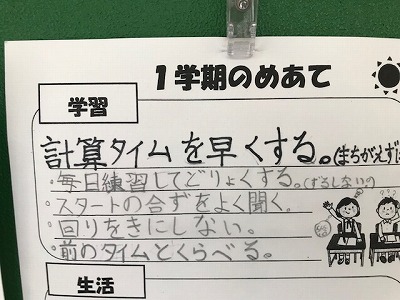 1学期のめあて
学習
計算タイムを早くする。(まちがえずに
・毎日練習してどりょくする。(ずるしないの)
・スタートの合ずをよく聞く。
・回りをきにしない。
・前のタイムとくらべる。
生活